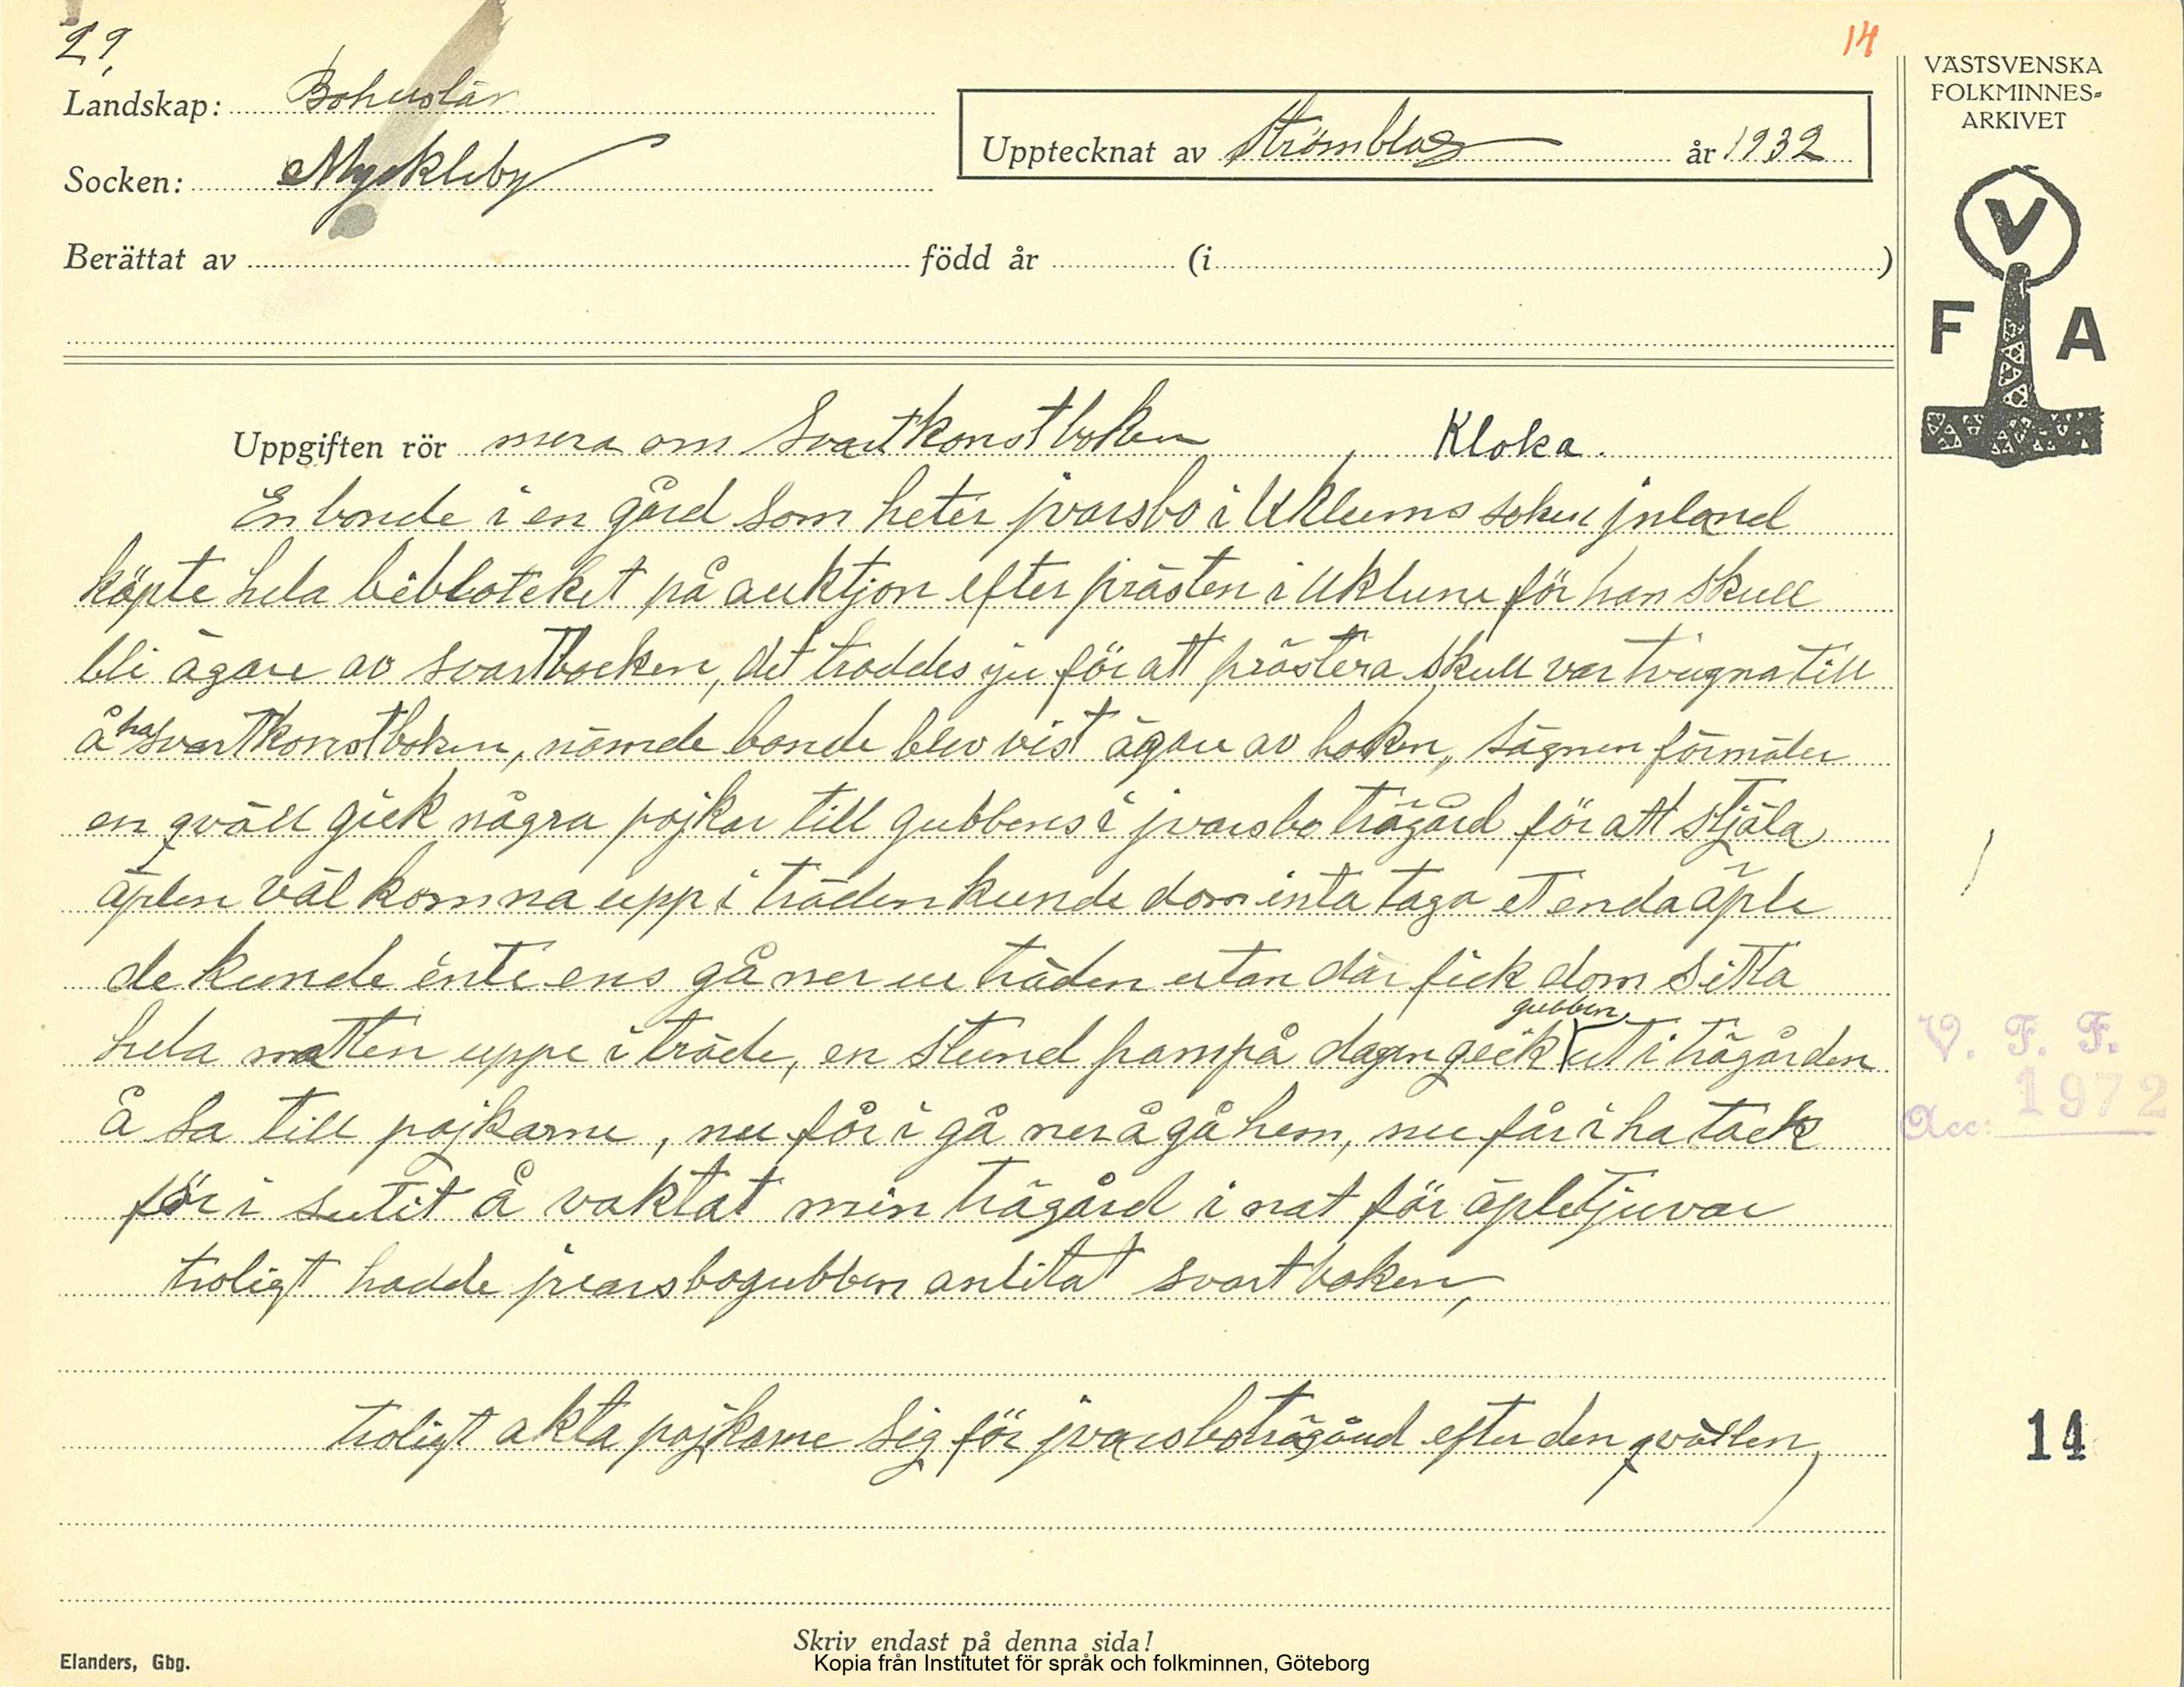 29.
14
Landskap: Bohuslän
Socken: Myckleby
Upptecknat av Strömblad år 1932
Berättat av född år (i )
VÄSTSVENSKA
FOLKMINNES-
ARKIVET
V
F A
Uppgiften rör mera om Svartkonstboken, Kloka.
En bonde i en gård som heter jvarsbo i Uklums soken jnland
köpte hela bibloteket på auktjon efter prästen i Uklum för han skull
bli ägare av svartbocken, det troddes ju för att prästera skull var tvugna till
å ha svartkonstboken, nämde bonde blev vist ägare av boken, sägnen förmäler
en qväll gick några pojkar till gubbens i jvarsbo trägård för att stjäla
äplen väl komna upp i träden kunde dom inta taga et enda äple
de kunde inte ens gå ner ur träden utan där fick dom sitta
hela natten uppe i träde, en stund frampå dagen geck gubben ut i trägården
å sa till pojkarne, nu får i gå ner å gå hem, nu får i ha tack
för i sutit å vaktat min trägård i nat för äpletjuvar
troligt hadde jvarsbogubben anlitat svartboken,
troligt akta pojkarne sig för jvarsboträgård efter den qvällen,
V. F. F.
1972
Acc:
14
Skriv endast på denna sida!
Elanders, Gbg.
Kopia från Institutet för språk och folkminnen, Göteborg